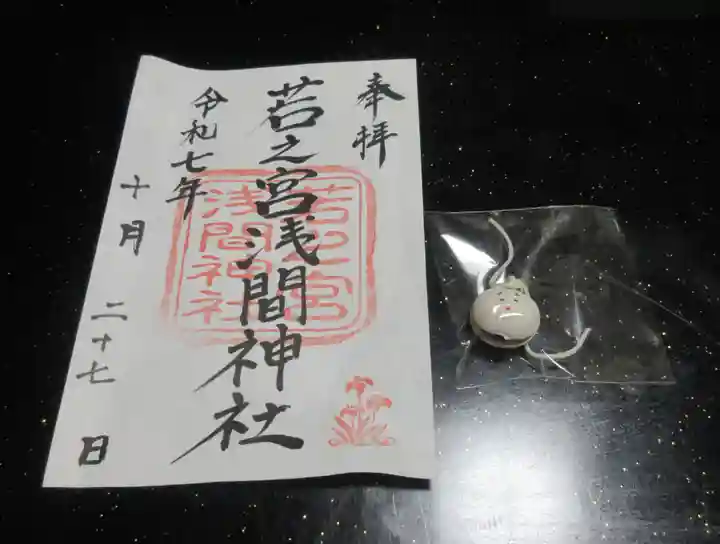 奉拝
若之宮浅間神社
若之宮
浅間神社
令和七年
十月二十七日